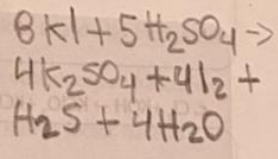 8KI + 5H₂SO₄ →
4K₂SO₄ + 4I₂ +
H₂S + 4H₂O